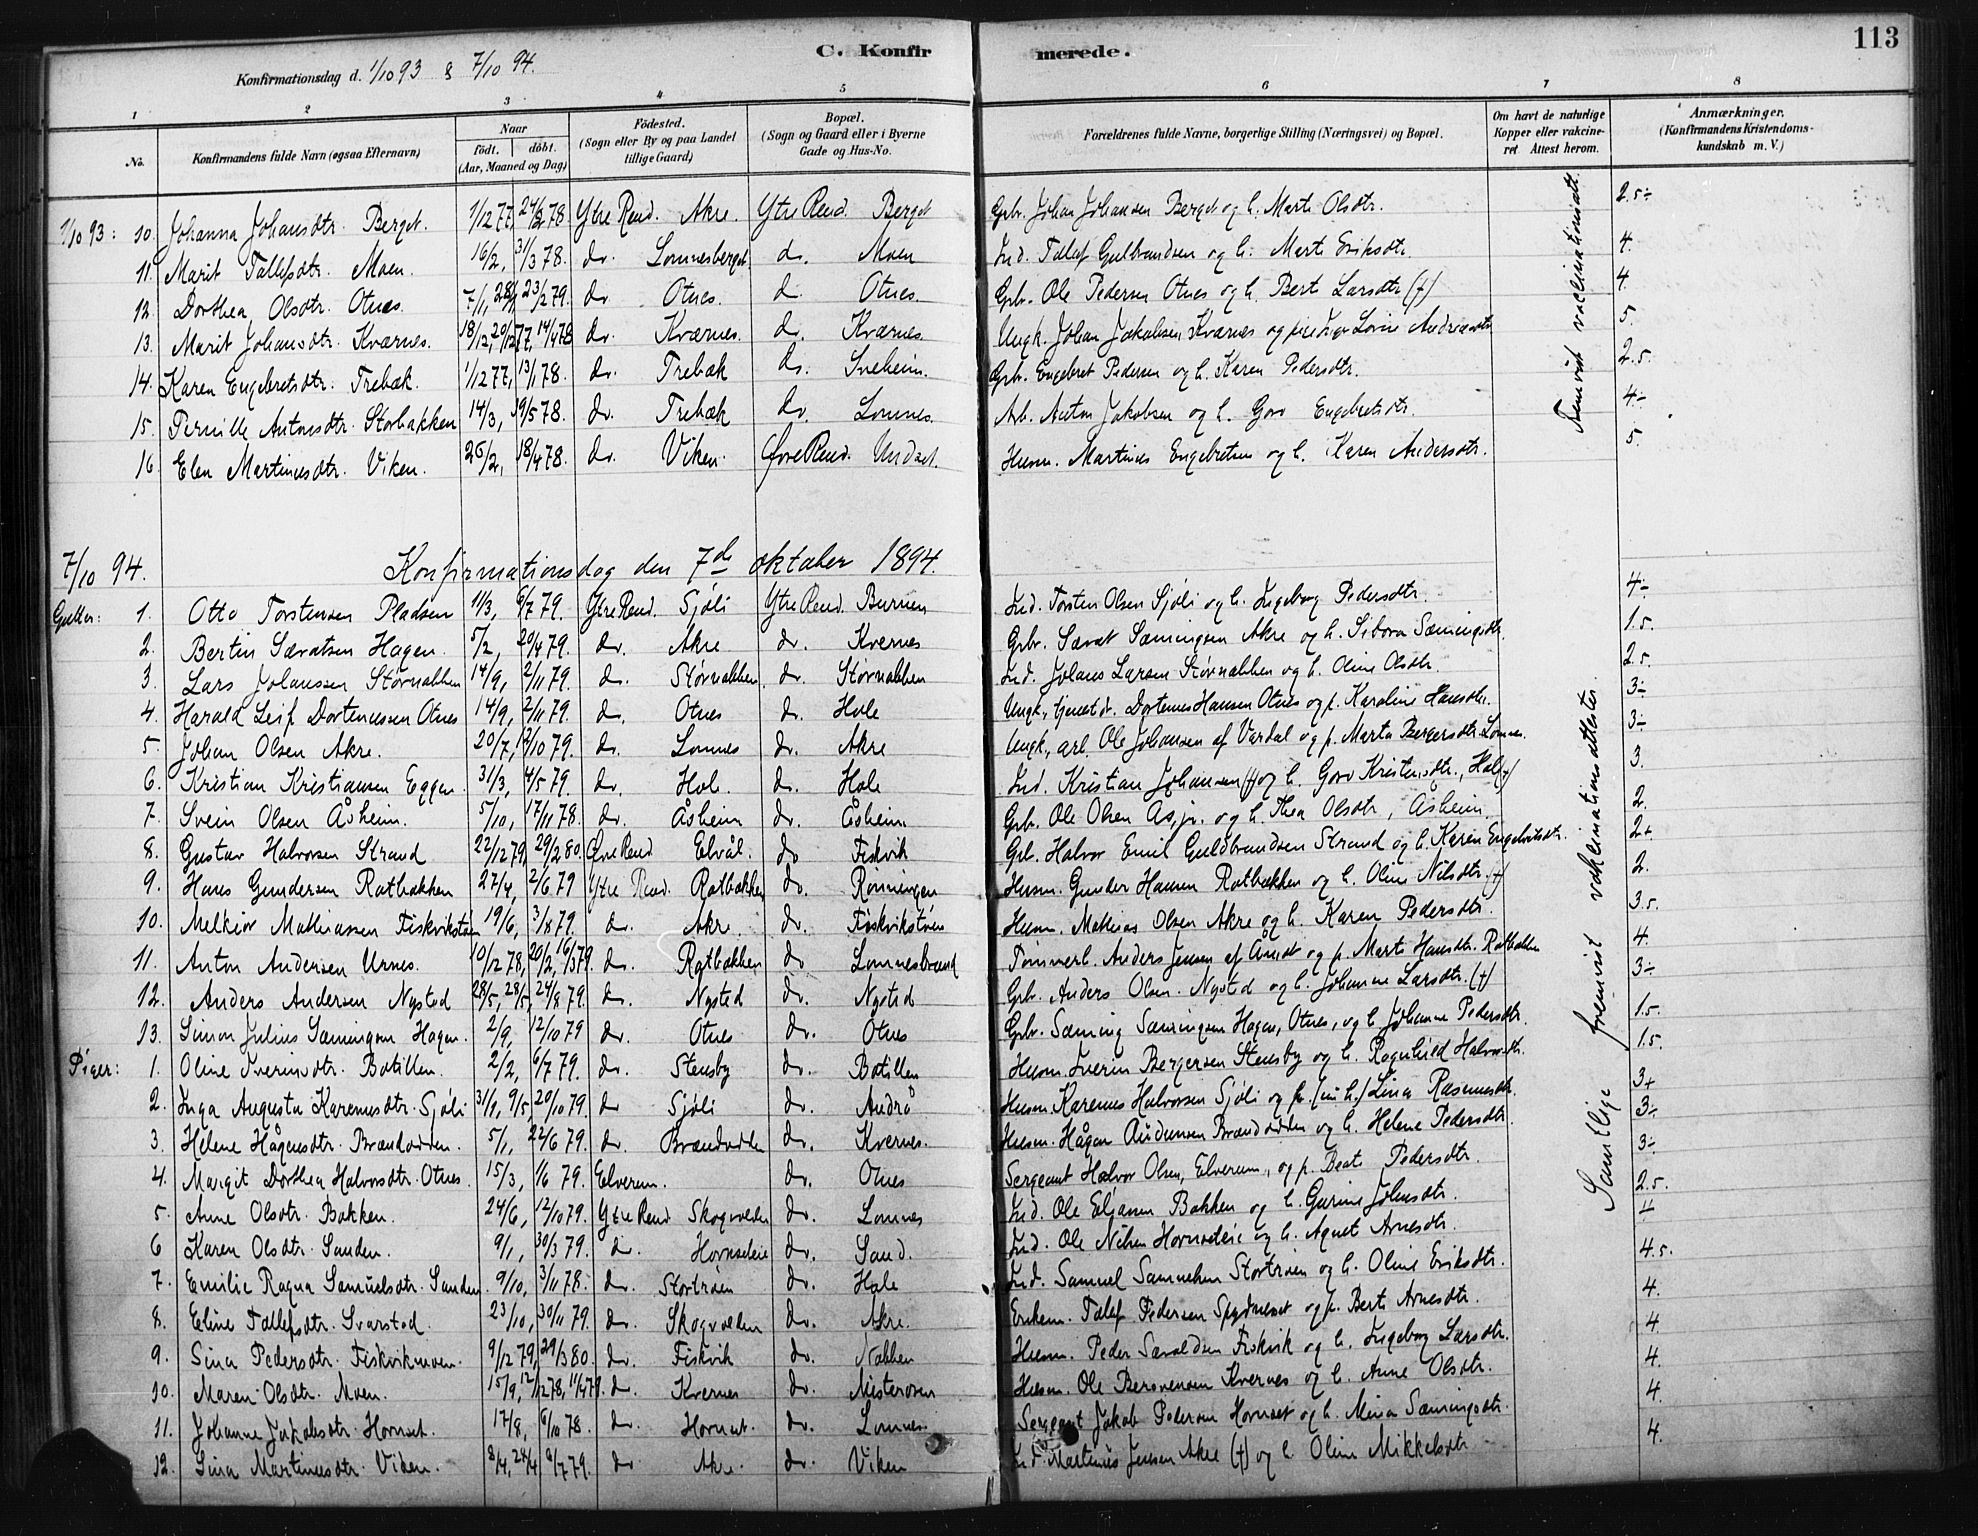 C. Konfirmerede. 113
Konfirmationsdag d. 1/10 93 & 7/10 94.
1 2 3 4 5 6 7 8
No. Konfirmandens fulde Navn (ogsaa Efternavn) Naar født. døbt. (Aar, Maaned og Dag) Födested. (Sogn eller By og paa Landet tillige Gaard) Bopæl. (Sogn og Gaard eller i Byerne Gade og Hus-No. Forældrenes fulde Navne, borgerlige Stilling (Næringsvei) og Bopæl. Om havt de naturlige Kopper eller vakcineret. Attest herom. Anmærkninger. (Konfirmandens Kristendomskundskab m. V.)
1/10 93: 10. Johanna Johansdtr. Berget. 1/12 77, 24/2 78 Ytre Rend. Akre. Ytre Rend. Berget Grb. Johan Johansen Berget og h. Marte Olsdtr. 2.5÷
11. Marit Tallefsdtr. Moen. 16/2, 31/3 78. do. Lomnesberget do. Moen Ind. Tallef Gulbrandsen og h. Marte Eriksdtr. 4.
12. Dorthea Olsdtr. Otnes. 7/1, 28/1 23/2 79. do. Otnes. do. Otnes. Grb. Ole Pedersen Otnes og h. Bert Larsdtr (+) 4.
13. Marit Johansdtr. Kværnes. 18/12, 20/12 77, 14/4 78 do. Kværnes. do. Kværnes. Ungk. Johan Jakobsen Kværnes og pige Lovise Andreasdtr 5.
14. Karen Engebretsdtr. Trebæk. 1/12 77, 13/1 78. do. Trebæk do. Sveheim. Grb. Engebret Pedersen og h. Karen Pedersdtr. 2.5.
15. Pernille Antonsdtr. Storbækken 14/3, 19/5 78. do. Trebæk do. Lomnes. Arb. Anton Jakobsen og h. Goro Engebretsdtr. 4÷
16. Elen Martinusdtr. Viken. 26/2, 18/4 78. do. Viken. Øvre Rend. Undset. Husm. Martinus Engebretsen og h. Karen Andersdtr. 5.
Fremvist vaccinationsatt.
7/10 94. Konfirmationsdag den 7de oktober 1894.
Gutter: 1. Otto Torstensen Pladsen 11/3, 6/7 79. Ytre Rend. Sjøli Ytre Rend. Burnen Ind. Torsten Olsen Sjøli og h. Ingeborg Pedersdtr. 4÷
2. Bertin Sævatsen Hagen. 5/2, 20/4 79. do. Akre do. Kvernes Grb. Sævat Sæmingsen Akre og h. Sibora Sæmingsdtr. 1.5.
3. Lars Johansen Størnabben 14/9, 2/11 79. do. Størnabben. do. Størnabben Ind. Johans Larsen Størnabben og h. Oline Olsdtr. 2.5.
4. Harald Leif Dortenussen Otnes 14/9, 2/11 79. do. Otnes do. Hole Ungk., tjenest dr. Dortenus Hansen Otnes og p. Karoline Hansdtr. 3÷
5. Johan Olsen Akre. 20/7, 12/10 79. do. Lomnes do. Akre Ungk, arb. Ole Johansen af Vardal og p. Marta Bergersdtr Lomnes. 3÷
6. Kristian Kristiansen Eggen. 31/3, 4/5 79. do. Hole. do. Hole Ind. Kristian Johansen (+) og h. Goro Kristensdtr., Hole (+) 3.
7. Svein Olsen Åsheim. 5/10, 17/11 78. do. Åsheim do. Åsheim Grb. Ole Olsen Ås, jr. og h. Thea Olsdtr, Åsheim 2.
8. Gustav Halvorsen Strand 22/12 79, 29/2 80. Øvre Rend. Elvål. do Fiskvik Grb. Halvor Emil Guldbrandsen Strand og h. Karen Engebretsdtr. 2+
9. Hans Gundersen Ratbækken 27/4, 2/6 79 Ytre Rend. Ratbækken do. Rønningen Husm. Gunder Hansen Ratbækken og h. Oline Nilsdtr. (+) 2.
10. Melkior Mathiassen Fiskvikstøen 19/6, 3/8 79. do. Akre. do. Fiskvikstøen Husm. Mathias Olsen Akre og h. Karen Pedersdtr. 3.5.
11. Anton Andersen Urnes. 10/12 78, 20/2, 16/3 79. do. Ratbækken do Lomnesbrænd Tømmerh. Anders Jensen af Åmot og p. Marte Hansdtr. Ratbækken 4.
12. Anders Andersen Nysted 28/5, 28/5, 24/8 79. do. Nysted do. Nysted Grb. Anders Olsen Nysted og h. Johanne Larsdtr. (+) 3÷
13. Simon Julius Sæmingsen Hagen. 2/9, 12/10 79 do. Otnes do. Otnes Grb. Sæming Sæmingsen Hagen, Otnes, og h. Johanne Pedersdtr. 1.5.
Piger: 1. Oline Iverinsdtr. Botillen. 2/2, 6/7 79. do. Stensby do. Botillen Husm. Iverin Bergersen Stensby og h. Ragnhild Halvorsdtr. 1.5.
2. Inga Augusta Karenusdtr. Sjøli 31/1, 9/5, 20/10 79. do Sjøli do. Andrå Husm. Karenus Halvorsen Sjøli og p. (nu h.) Lina Rasmusdtr. 3+
3. Helene Hågensdtr. Brændvolden. 5/1, 22/6 79. do. Brændvolden do. Kvernes. Husm. Hågen Audunsen Brændvolden og h. Helene Pedersdtr. 3÷
4. Margit Dorthea Halvorsdtr. Otnes. 15/3, 1/6 79. Elverum. do. Otnes Sergeant Halvor Olsen, Elverum, og p. Beate Pedersdtr. 3÷
5. Anne Olsdtr. Bakken. 24/6, 12/10 79. Ytre Rend Skogvolden do. Lomnes Ind. Ole Eliasen Bakken og h. Gurine Johnsdtr. 2.5.
6 Karen Olsdtr. Sanden. 9/1, 30/3 79. do. Hornseteie do. Sand. Ind. Ole Nilsen Hornseteie og h. Agnet Arnesdtr. 4
7. Emilie Ragna Samuelsdtr. Sanden 9/10, 3/11 78. do. Stortrøen do. Hole Ind. Samuel Samuelsen Stortrøen og h. Oline Eriksdtr. 4.5.
8. Eline Tallefsdtr. Svarstad. 23/10, 30/11 79. do. Skogvolden do. Akre. Enkem. Tallef Pedersen og p. Berte Arnesdtr. 4.
9. Sina Pedersdtr. Fiskvikmoen. 9/12 79, 29/3 80. do. Fiskvik do. Nabben Husm. Peder Sævaldsen Fiskvik og h. Ingeborg Larsdtr. 4.
10. Maren Olsdtr. Moen. 15/9, 12/12 78, 11/4 79. do. Kvernes do. Misterosen Husm. Ole Bersvensen Kvernes og h. Anne Olsdtr. 4.
11. Johanne Jakobsdtr. Hornset. 17/8, 6/10 78. do. Hornset. do. Lomnes. Sergeant Jakob Pedersen Hornset og h. Mina Sæmingsdtr. 4.
12. Sina Martinusdtr. Viken. 8/4, 24/4 6/7 79. do Akre. do. Viken Ind. Martinus Jensen Akre (+) og h. Oline Mikkelsdtr 4.
Samtlige fremvist vakcinationsattester.